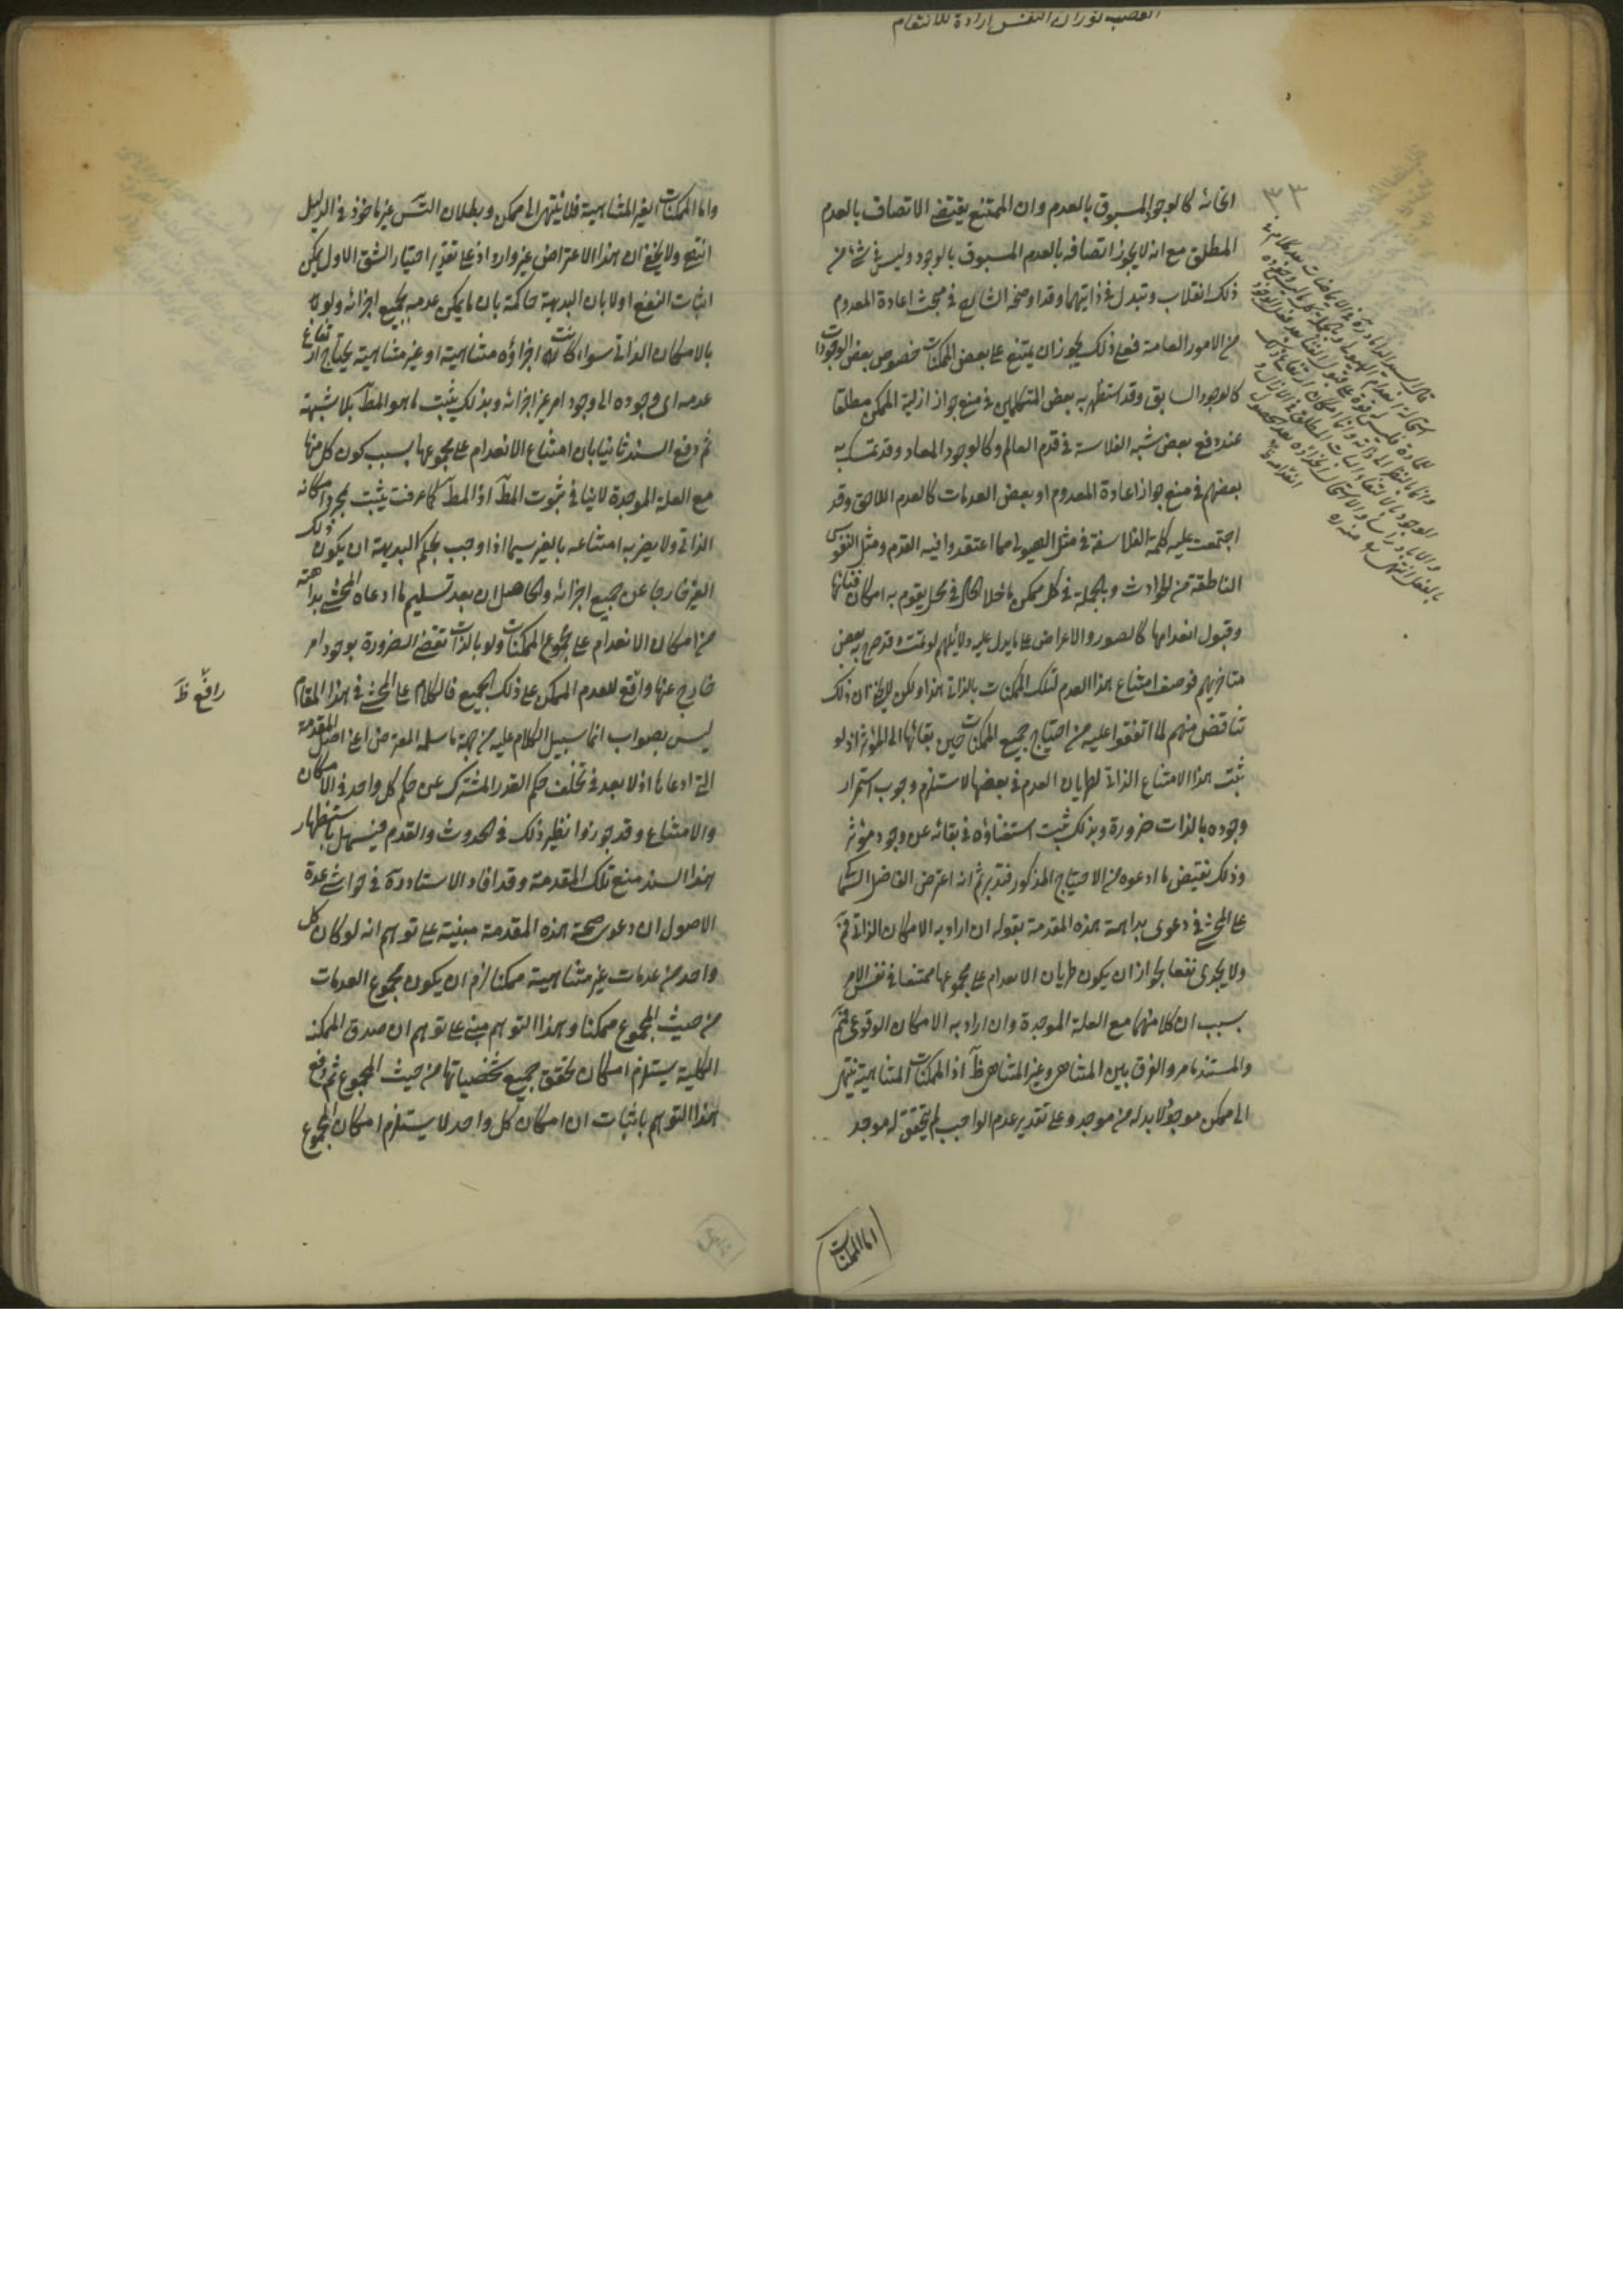 الغضب ثوران النفس ارادة للانتقام
٣٣
انحائه كالوجود المسبوق بالعدم وان الممتنع يقتضي الاتصاف بالعدم
المطلق مع انه لا يجوز اتصافه بالعدم المسبوق بالوجود وليس في شئ من
ذلك انقلاب وتبدل في ذاتيهما وقد اوضحه الشارح في مبحث اعادة المعدوم
من الامور العامة فعلى ذلك يجوز ان يمتنع على بعض الممكنات خصوص بعض الوجودات
كالوجود السابق وقد استظهر به بعض المتكلمين في منع جواز ازلية الممكن مطلقا
عند دفع بعض شبه الفلاسفة في قدم العالم وكالوجود المعاد وقد تمسك به
بعضهم في منع جواز اعادة المعدوم او بعض العدمات كالعدم اللاحق وقد
اجتمعت عليه كلمة الفلاسفة في مثل الهيولى مما اعتقدوا فيه القدم ومثل النفوس
الناطقة من الحوادث وبالجملة في كل ممكن ما خلا الحال في محل يقوم به امكان فنائها
وقبول انعدامها كالصور والاعراض على ما يدل عليه دلائلهم لو تمت وقد صرح به بعض
متاخريهم فوصف امتناع هذا العدم لتلك الممكنات بالذاتي هذا ولكن لا يخفى ان ذلك
تناقض منهم لما اتفقوا عليه من احتياج جميع الممكنات حين بقائها الى المؤثر اذ لو
ثبت هذا الامتناع الذاتي لطريان العدم في بعضها لاستلزم وجوب استمرار
وجوده بالذات ضرورة وبذلك ثبت استغناؤه في بقائه عن وجود مؤثر
وذلك نقيض ما ادعوه من الاحتياج المذكور فتدبر ثم انه اعترض الفاضل
على المحشي في دعوى بداهة هذه المقدمة بقوله ان اراد به الامكان الذاتي فم
ولا يجدى نفعا لجواز ان يكون طريان الانعدام على مجموعها ممتنعا في نفس الامر
بسبب ان كلا منها مع العلة الموجدة وان اراد به الامكان الوقوعي فم
والمستند ما مر والفرق بين المتناهي وغير المتناهي ظ اذ الممكنات المتناهية ينتهي
الى ممكن موجود لا بد له من موجد وعلى تقدير عدم الواجب لم يتحقق له موجد
اما الممكنات
واما الممكنات الغير المتناهية فلا ينتهى الى ممكن وبطلان التس غير ماخوذ في الدليل
انتهى ولا يخفى ان هذا الاعتراض غير وارد اذ على تقدير اختيار الشق الاول يمكن
اثبات النفع اولا بان البديهة حاكمة بان ما يمكن عدمه بجميع اجزائه ولو
بالامكان الذاتي سواء كانت اجزاؤه متناهية او غير متناهية يحتاج ارتفاع
عدمه اى وجوده الى وجود امر غير اجزائه وبذلك يثبت ما هو المط بلا شبهة
ثم دفع السند ثانيا بان امتناع الانعدام على مجموعها بسبب كون كل منها
مع العلة الموجدة لا ينافي ثبوت المط اذ المط كما عرفت يثبت بمجرد امكانه
الذاتي ولا يضر به امتناعه بالغير سيما اذا وجب بحكم البديهة ان يكون ذلك
الغير خارجا عن جميع اجزائه والحاصل ان بعد تسليم ما ادعاه المحشي بداهته
من امكان الانعدام على مجموع الممكنات ولو بالذات تقتضى الضرورة بوجود امر
خارج عنها واقع للعدم الممكن على ذلك الجميع فالكلام على المحشي في هذا المقام
رافع ظ
ليس بصواب انما سبيل الكلام عليه من جهة ما سلمه المعترض اعني اصل المقدمة
التي ادعاها اذ لا بعد في تخلف حكم القدر المشترك عن حكم كل واحد في الامكان
والامتناع وقد جوزوا نظير ذلك في الحدوث والقدم فيسهل باستظهار
هذا السند منع تلك المقدمة وقد افاد الاستاد ره في حواشي عدة
الاصول ان دعوى صحة هذه المقدمة مبنية على توهم انه لو كان كل
واحد من عدمات غير متناهية ممكنا لزم ان يكون مجموع العدمات
من حيث المجموع ممكنا وهذا التوهم مبني على توهم ان صدق الممكنة
الكلية يستلزم امكان تحقق جميع شخصياتها من حيث المجموع ثم دفع
هذا التوهم باثبات ان امكان كل واحد لا يستلزم امكان المجموع